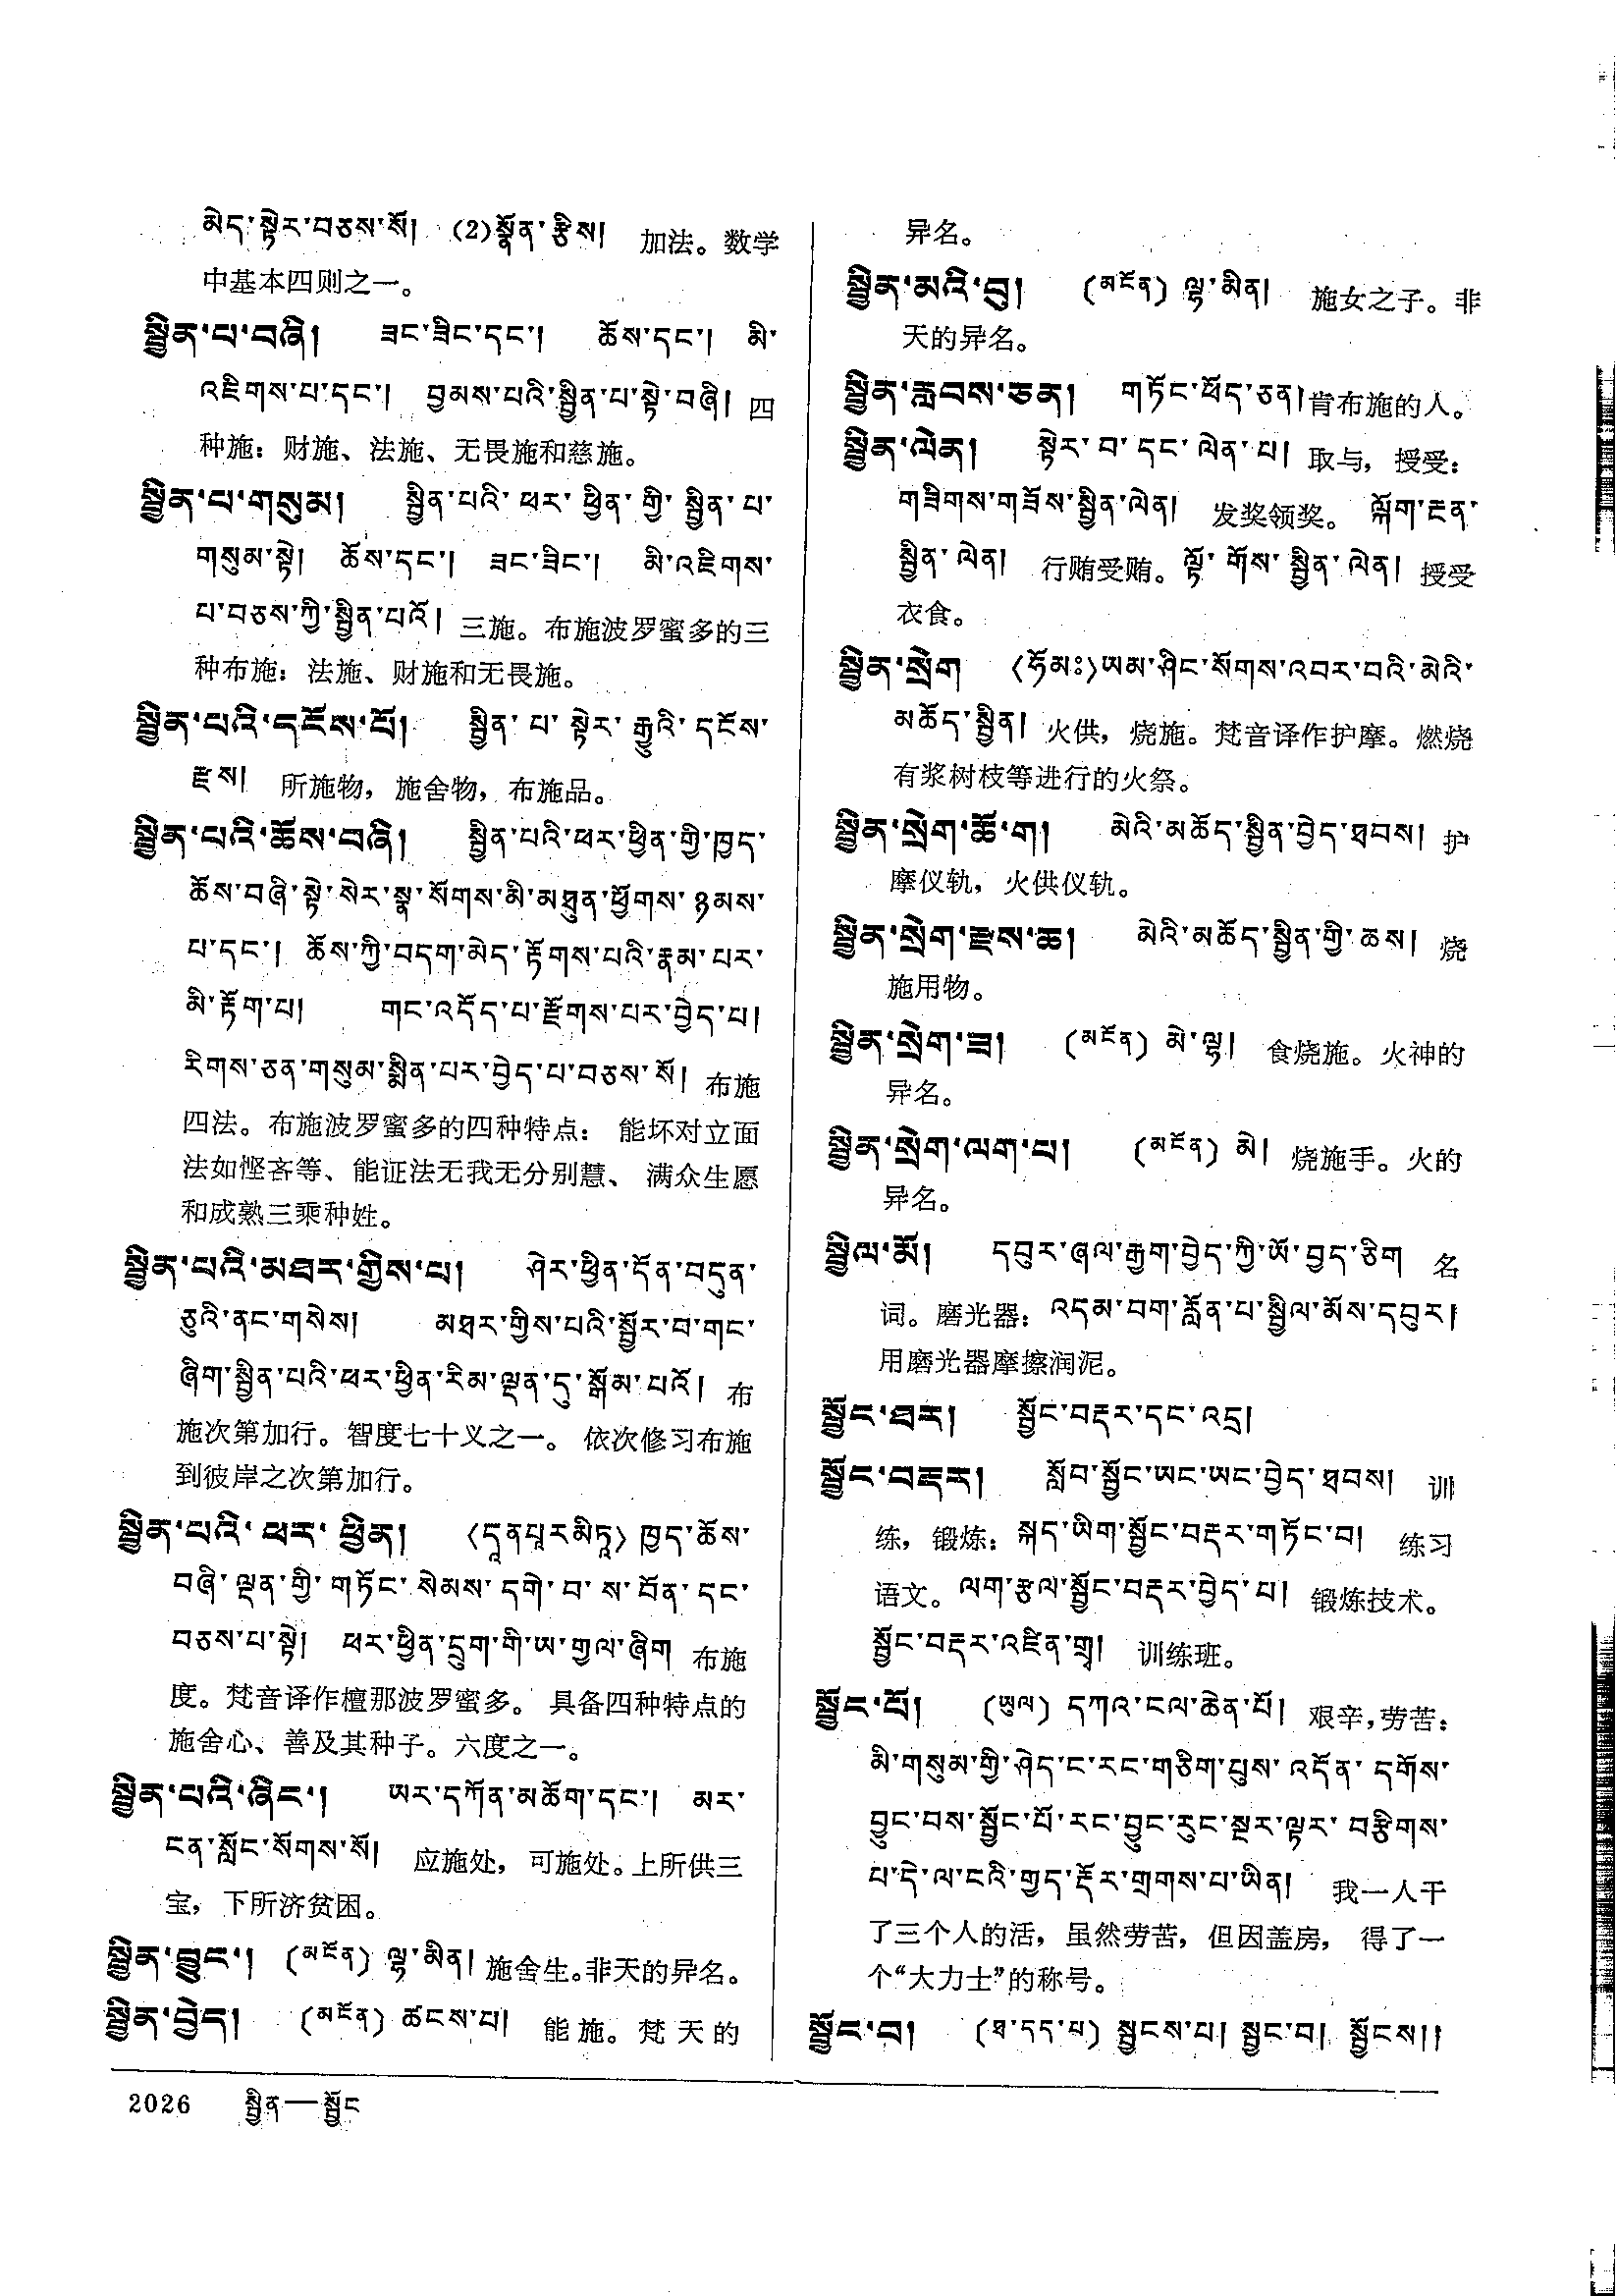 མེད་སྟེར་བཅས་སོ། (2)སྣོན་རྩིས། 加法。数学
中基本四则之一。
སྦྱིན་པ་བཞི། ཟང་ཟིང་དང་། ཆོས་དང་། མི་
འཇིགས་པ་དང་། བྱམས་པའི་སྦྱིན་པ་སྟེ་བཞི། 四
种施：财施、法施、无畏施和慈施。
སྦྱིན་པ་གསུམ། སྦྱིན་པའི་ཕར་ཕྱིན་གྱི་སྦྱིན་པ་
གསུམ་སྟེ། ཆོས་དང་། ཟང་ཟིང་། མི་འཇིགས་
པ་བཅས་ཀྱི་སྦྱིན་པའོ། 三施。布施波罗蜜多的三
种布施：法施、财施和无畏施。
སྦྱིན་པའི་དངོས་པོ། སྦྱིན་པ་སྟེར་རྒྱུའི་དངོས་
རྫས། 所施物，施舍物，布施品。
སྦྱིན་པའི་ཆོས་བཞི། སྦྱིན་པའི་ཕར་ཕྱིན་གྱི་ཁྱད་
ཆོས་བཞི་སྟེ་སེར་སྣ་སོགས་མི་མཐུན་ཕྱོགས་ཉམས་
པ་དང་། ཆོས་ཀྱི་བདག་མེད་རྟོགས་པའི་རྣམ་པར་
མི་རྟོག་པ། གང་འདོད་པ་རྫོགས་པར་བྱེད་པ།
རིགས་ཅན་གསུམ་སྨིན་པར་བྱེད་པ་བཅས་སོ། 布施
四法。布施波罗蜜多的四种特点： 能坏对立面
法如悭吝等、能证法无我无分别慧、 满众生愿
和成熟三乘种姓。
སྦྱིན་པའི་མཐར་གྱིས་པ། ཤེར་ཕྱིན་དོན་བདུན་
ཅུའི་ནང་གསེས། མཐར་གྱིས་པའི་སྦྱོར་བ་གང་
ཞིག་སྦྱིན་པའི་ཕར་ཕྱིན་རིམ་ལྡན་དུ་སྒོམ་པའོ། 布
施次第加行。智度七十义之一。 依次修习布施
到彼岸之次第加行。
སྦྱིན་པའི་ཕར་ཕྱིན། 〈དཱནཔཱརམིཏཱ〉ཁྱད་ཆོས་
བཞི་ལྡན་གྱི་གཏོང་སེམས་དགེ་བ་ས་བོན་དང་
བཅས་པ་སྟེ། ཕར་ཕྱིན་དྲུག་གི་ཨ་གྱལ་ཞིག 布施
度。梵音译作檀那波罗蜜多。 具备四种特点的
施舍心、善及其种子。六度之一。
སྦྱིན་པའི་ཞིང་། ཡར་དཀོན་མཆོག་དང་། མར་
ངན་སློང་སོགས་སོ། 应施处，可施处。上所供三
宝，下所济贫困。
སྦྱིན་བྱུང་། (མངོན) ལྷ་མིན། 施舍生。非天的异名。
སྦྱིན་བྱེད། (མངོན) ཚངས་པ། 能施。梵天的
异名。
སྦྱིན་མའི་བུ། (མངོན) ལྷ་མིན། 施女之子。非
天的异名。
སྦྱིན་རླབས་ཅན། གཏོང་ཕོད་ཅན། 肯布施的人。
སྦྱིན་ལེན། སྟེར་བ་དང་ལེན་པ། 取与，授受：
གཟིགས་གཟོས་སྦྱིན་ལེན། 发奖领奖。 ལྐོག་རྔན་
སྦྱིན་ལེན། 行贿受贿。 ལྟོ་གོས་སྦྱིན་ལེན། 授受
衣食。
སྦྱིན་སྲེག 〈ཧོམཿ〉ཡམ་ཤིང་སོགས་འབར་བའི་མེའི་
མཆོད་སྦྱིན། 火供，烧施。梵音译作护摩。燃烧
有浆树枝等进行的火祭。
སྦྱིན་སྲེག་ཆོ་ག། མེའི་མཆོད་སྦྱིན་བྱེད་ཐབས། 护
摩仪轨，火供仪轨。
སྦྱིན་སྲེག་རྫས་ཆ། མེའི་མཆོད་སྦྱིན་གྱི་ཆས། 烧
施用物。
སྦྱིན་སྲེག་ཟ། (མངོན) མེ་ལྷ། 食烧施。火神的
异名。
སྦྱིན་སྲེག་ལག་པ། (མངོན) མེ། 烧施手。火的
异名。
སྦྱིལ་མོ། དབུར་ཞལ་རྒྱག་བྱེད་ཀྱི་ཡོ་བྱད་ཅིག 名
词。磨光器：འདམ་བག་རློན་པ་སྦྱིལ་མོས་དབུར།
用磨光器摩擦润泥。
སྦྱོང་ཐར། སྦྱོང་བརྡར་དང་འདྲ།
སྦྱོང་བརྡར། སློབ་སྦྱོང་ཡང་ཡང་བྱེད་ཐབས། 训
练，锻炼：སྐད་ཡིག་སྦྱོང་བརྡར་གཏོང་བ། 练习
语文。ལག་རྩལ་སྦྱོང་བརྡར་བྱེད་པ། 锻炼技术。
སྦྱོང་བརྡར་འཛིན་གྲྭ། 训练班。
སྦྱོང་པོ། (ཡུལ) དཀའ་ངལ་ཆེན་པོ། 艰辛，劳苦：
མི་གསུམ་གྱི་ཤེད་ང་རང་གཅིག་པུས་འདོན་དགོས་
བྱུང་བས་སྦྱོང་པོ་རང་བྱུང་རུང་སྔར་ལྟར་བརྩིགས་
པ་དེ་ལ་ངའི་གྱད་རྡོར་གྲགས་པ་ཡིན། 我一人干
了三个人的活，虽然劳苦，但因盖房， 得了一
个“大力士”的称号。
སྦྱོང་བ། (ཐ་དད་པ) སྦྱངས་པ། སྦྱང་བ། སྦྱོངས།།
2026 སྦྱིན—སྦྱོང